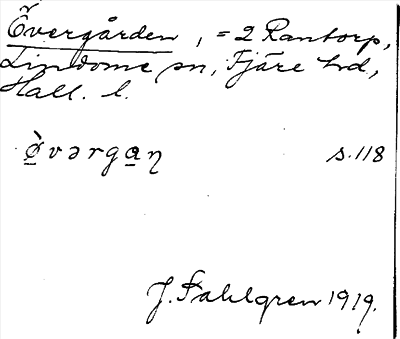 Övergården, = 2 Rantorp,
Lindome sn, Fjäre hd,
Hall. l.
ø̠̀vərga̠ŋ s. 118
J. Sahlgren 1919.